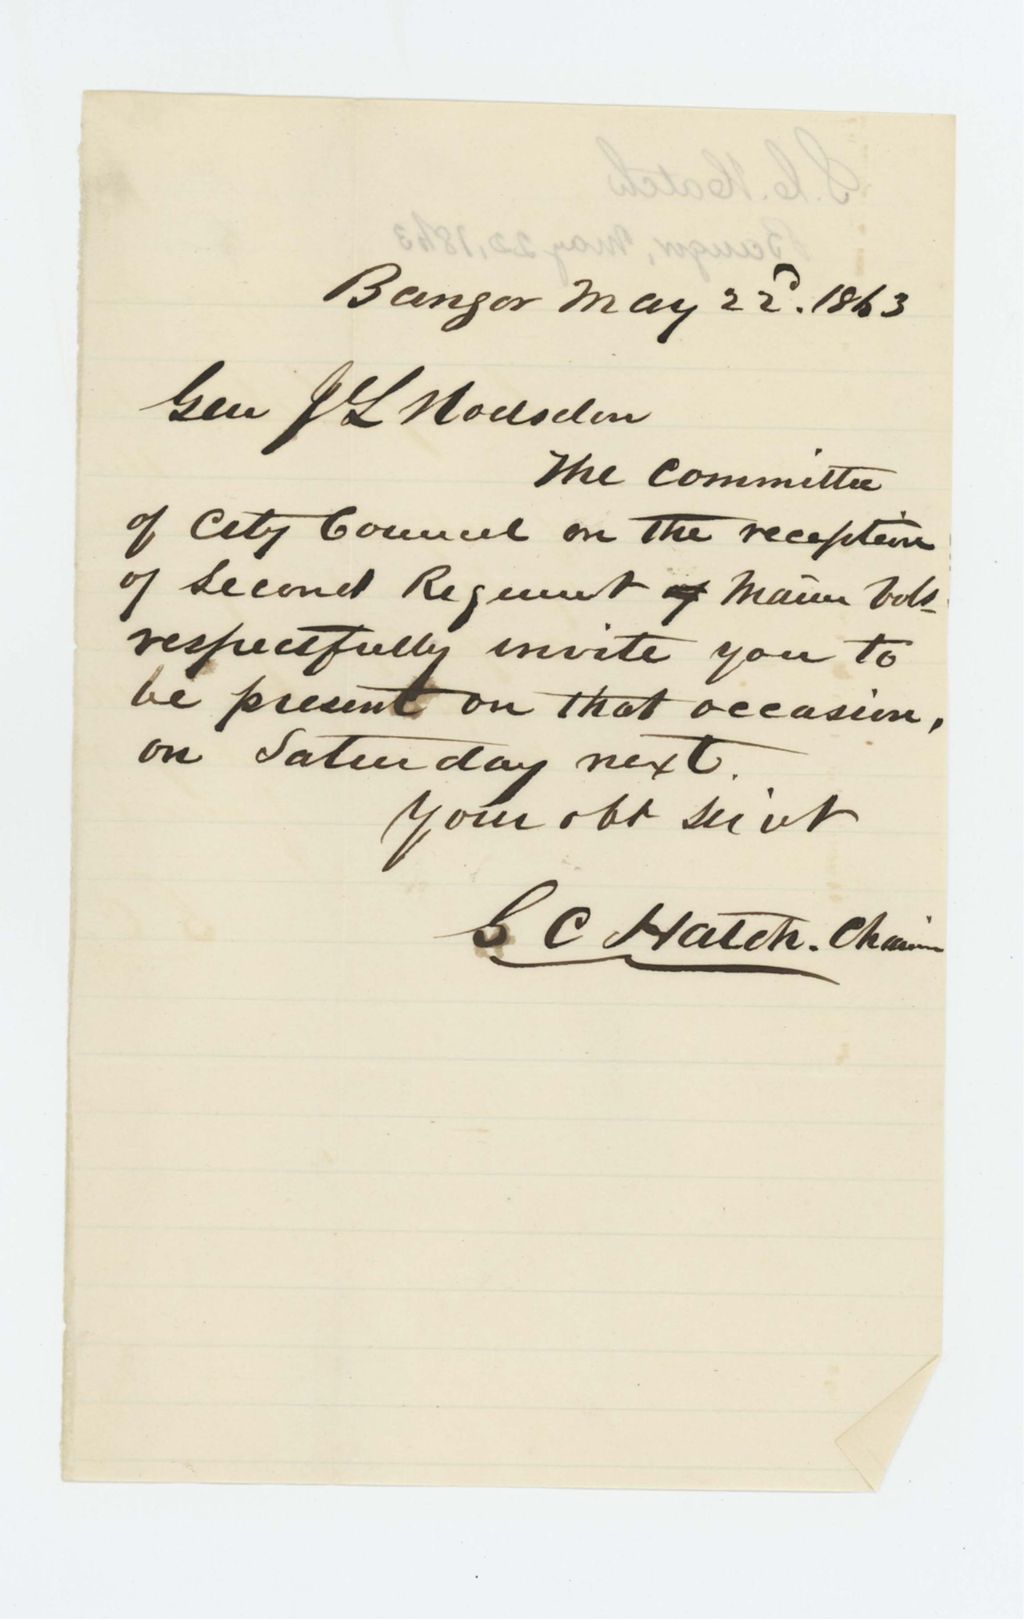 S. C. Hatch
Bangor, May 22, 1863
Bangor May 22d. 1863
Gen J L Hodsdon
The Committee
of City Council on the reception
of Second Regiment of Maine Vols
respectfully invite you to
be present on that occasion,
on Saturday next.
Your obt Servt
S C Hatch. Chairm